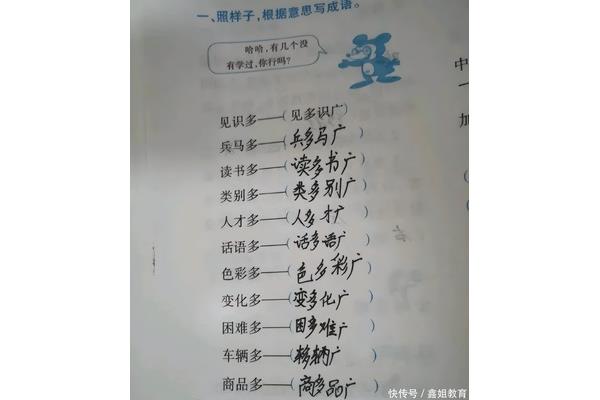 一、照样子，根据意思写成语。
哈哈，有几个没
有学过，你行吗？
见识多——（见多识广）
兵马多——（兵多马广）
读书多——（读多书广）
类别多——（类多别广）
人才多——（人多才广）
话语多——（话多语广）
色彩多——（色多彩广）
变化多——（变多化广）
困难多——（困多难广）
车辆多——（车多辆广）
商品多——（商多品广）
中
一
加
快传号／鑫姐教育